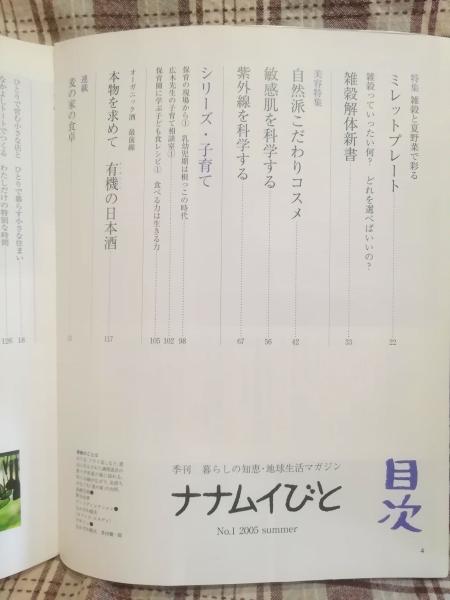 目次
季刊 暮らしの知恵・地球生活マガジン
ナナムイびと
No.1 2005 summer
特集 雑穀と夏野菜で彩る
ミレットプレート 22
雑穀っていったい何? どれを選べばいいの?
雑穀解体新書 33
美容特集
自然派こだわりコスメ 42
敏感肌を科学する 56
紫外線を科学する 67
シリーズ・子育て
保育の現場から① 乳幼児期は根っこの時代 98
広木先生の子育て相談室① 102
保育園に学ぶ子ども食レシピ① 食べる力は生きる力 105
オーガニック酒 最前線
本物を求めて 有機の日本酒 117
連載
麦の家の食卓
ひとりで営む小さな店と ひとりで暮らす小さな住まい 18
なかよしトートでつくる わたしだけの特別な時間 126
4